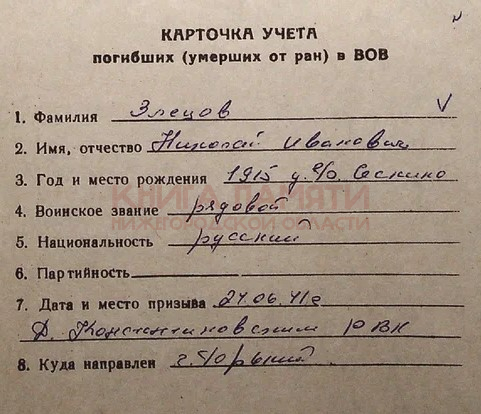 КАРТОЧКА УЧЕТА
погибших (умерших от ран) в ВОВ
1. Фамилия Злецов
2. Имя, отчество Николай Иванович
3. Год и место рождения 1915 с/о. Соснино
КНИГА ПАМЯТИ
4. Воинское звание рядовой
НИЖЕГОРОДСКОЙ ОБЛАСТИ
5. Национальность русский
6. Партийность
7. Дата и место призыва 24.06.41г
Д. Константиновским РВК
8. Куда направлен г. Горький